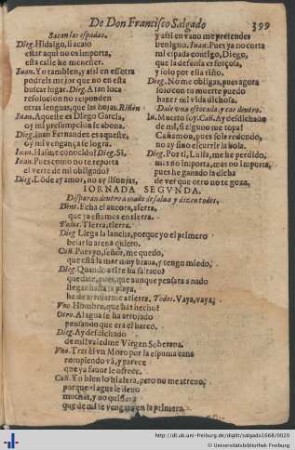 De Don Francisco Salgado
399
Sacan las espadas.
Dieg. Hidalgo, si acaso
estar aqui no os importa,
esta calle he menester.
Iuan. Yo tambien, y assi en essotra
podreis mejor que no en esta
buscar lugar. Dieg. A tan loca
resolucion no responden
otras lenguas, que las hojas. Riñen
Iuan. Aqueste es Diego Garcia,
oy mi presumpcion se abona.
Dieg. Iuan Fernandez es aqueste,
oy mi vengança se logra.
Iuan. Haisme conocido? Dieg. Si.
Iuan. Pues como no te reporta
el verte de mi obligado?
Dieg. Donde ay amor, no ay lisonjas,
y assi en vano me pretendes
benigno. Iuan. Pues ya no corta
mi espada contigo, Diego,
que la defensa es forçosa,
y solo por ella riño.
Dieg. No me obligas, pues agora
solo con tu muerte puedo
hazer mi vida dichosa.
Dale una estocada, y cae dentro.
Iu. Muerto soy. Cañ. Ay desdichado
de mi, si alguno me topa!
Cañamon, pues solo redondo,
no ay sino escurrir la bola.
Dieg. Por ti, Luisa, me he perdido,
mas no importa, mas no importa,
pues he ganado la dicha
de ver que otro no te goza.
IORNADA SEGVNDA.
Disparan dentro a modo de salva, y dizen todos.
Dent. Echa el ancora, aferra,
que ya estamos en tierra.
Todos. Tierra, tierra.
Dieg. Llega la lancha, porque yo el primero
besarlo arena quiero.
Cañ. Pues yo, señor, me quedo,
que está la mar muy brava, y tengo miedo,
Dieg. Quando a ti te ha faltado?
quedate, pues, que aunque pensara a nado
llegar hasta la playa,
he de arrojarme a tierra. Todos. Vaya, vaya,
Vno. Hombre, que has hecho?
Otro. Al agua se ha arrojado
pensando que era el barco.
Dieg. Ay desdichado
de mi! valedme Virgen Soberana.
Vno. Tras él un Moro por la espuma cana
rompiendo vá, y parece
que ya favor le ofrece.
Cañ. Yo bien lo hiziera, pero no me atrevo,
porque al agua le llevo
muchas, y no quisiera
que de mi se vengara en la primera.